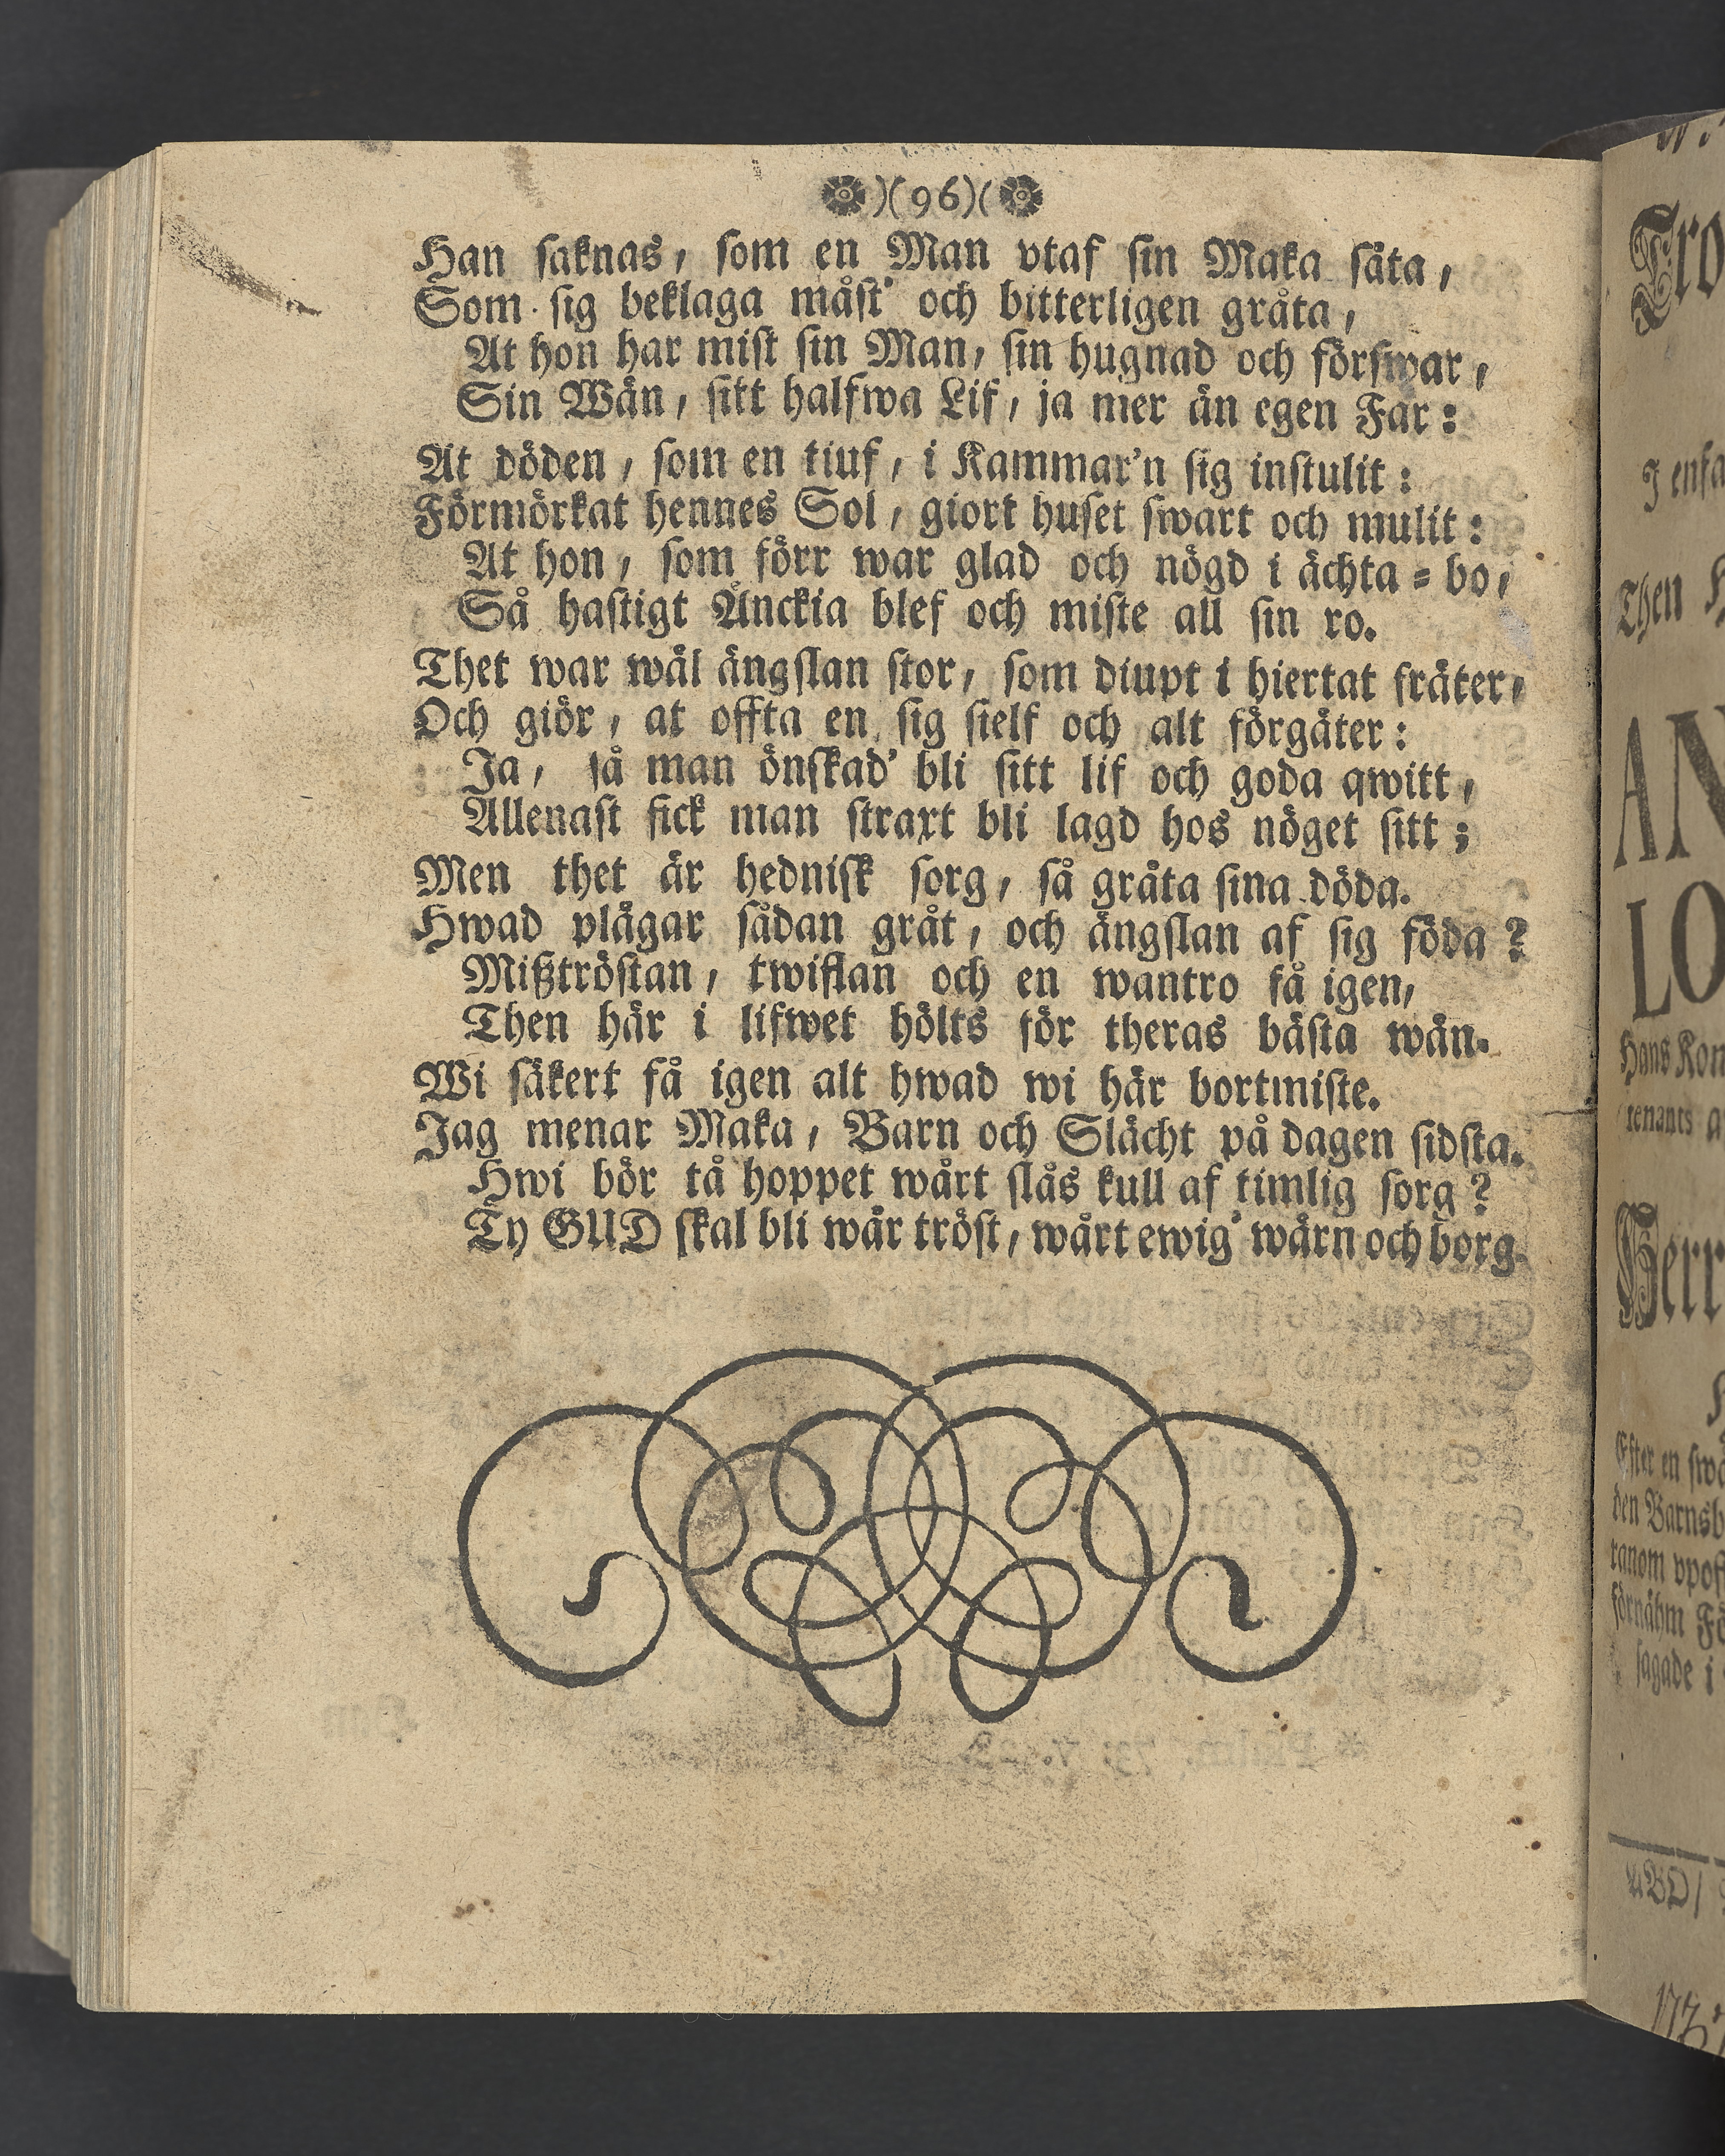 )(96)(
Han saknas, som en Man vtaf sin Maka säta,
Som sig beklaga måst' och bitterligen gråta,
At hon har mist sin Man, sin hugnad och förswar,
Sin Wän, sitt halfwa Lif, ja mer än egen Far:
At döden, som en tiuf, i Kammar'n sig instulit:
Förmörkat hennes Sol, giort huset swart och mulit:
At hon, som förr war glad och nögd i ächta=bo,
Så hastigt Änckia blef och miste all sin ro.
Thet war wäl ängslan stor, som diupt i hiertat fräter,
Och giör, at offta en sig sielf och alt förgäter:
Ja, så man önskad' bli sitt lif och goda qwitt,
Allenast fick man straxt bli lagd hos nöget sitt;
Men thet är hednisk sorg, så gråta sina döda.
Hwad plågar sådan gråt, och ängslan af sig föda?
Mißtröstan, twiflan och en wantro få igen,
Then här i lifwet hölts för theras bästa wän.
Wi säkert få igen alt hwad wi här bortmiste.
Jag menar Maka, Barn och Slächt på dagen sidsta.
Hwi bör tå hoppet wårt slås kull af timlig sorg?
Ty GUD skal bli wår tröst, wårt ewig' wärn och borg.
Tro
J enfa
Then H
AN
LO
Hans Kon
tenants a
Herr
Efter en swå
den Barnsb
ranom vpof
förnähm Fö
sagade i